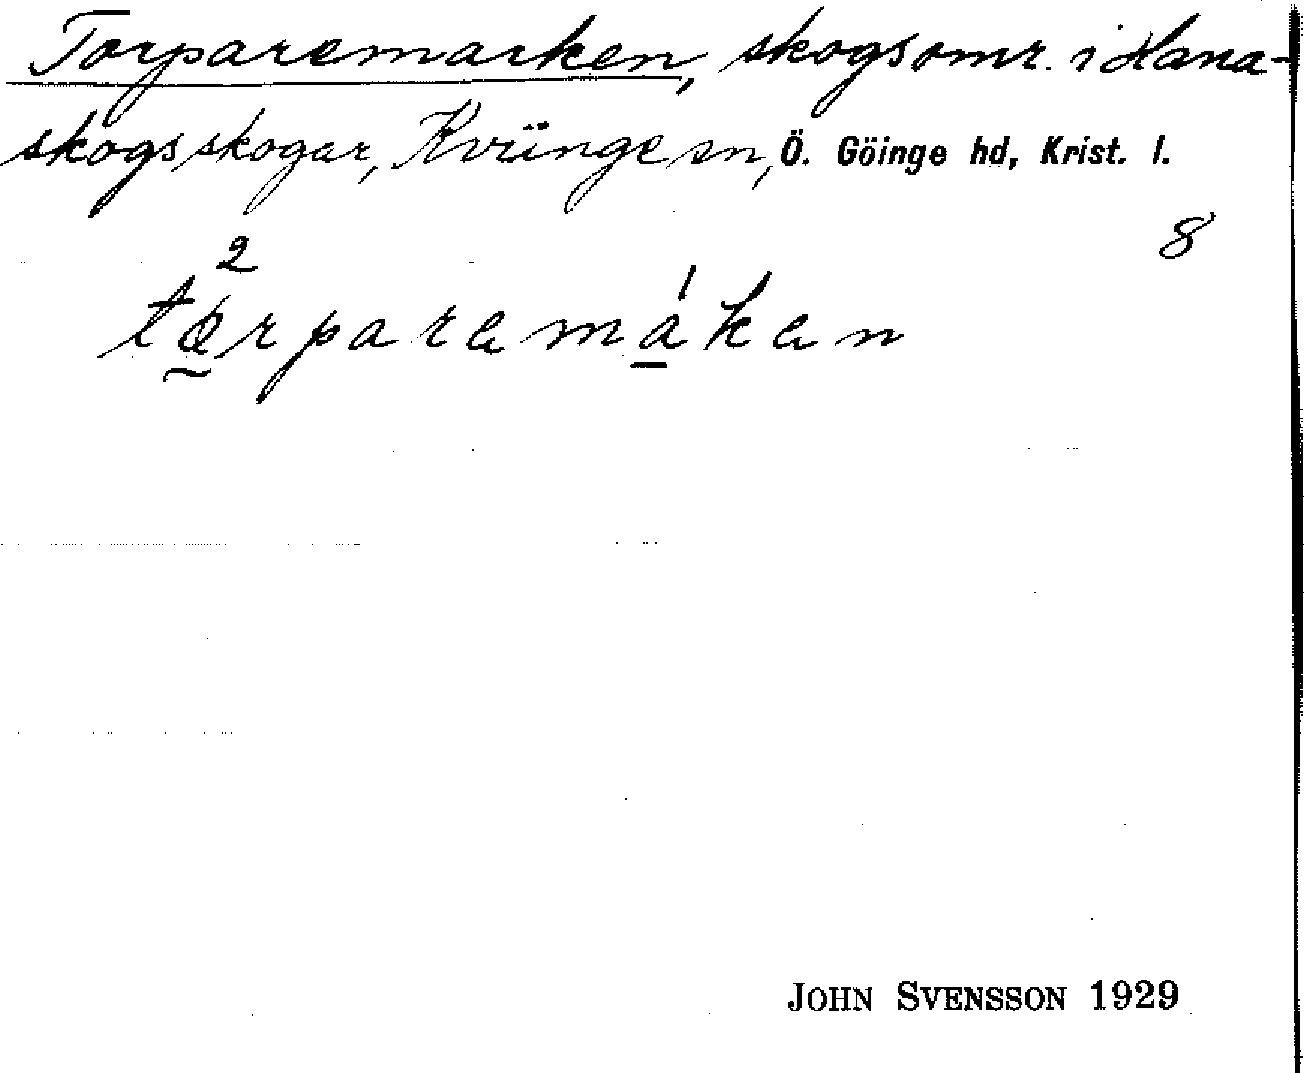 Torparemarken, skogsomr. i Hana-
skogsskogar, Kviinge sn, Ö. Göinge hd, Krist. l.
8
2 1
tørparemaken
JOHN SVENSSON 1929